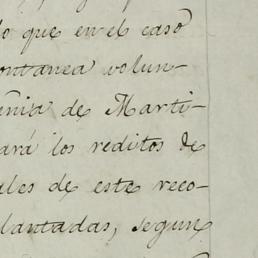 lo que en el caso
ontanea volun-
enia de Marti-
ará los reditos de
ales de este reco-
lantadas, segun